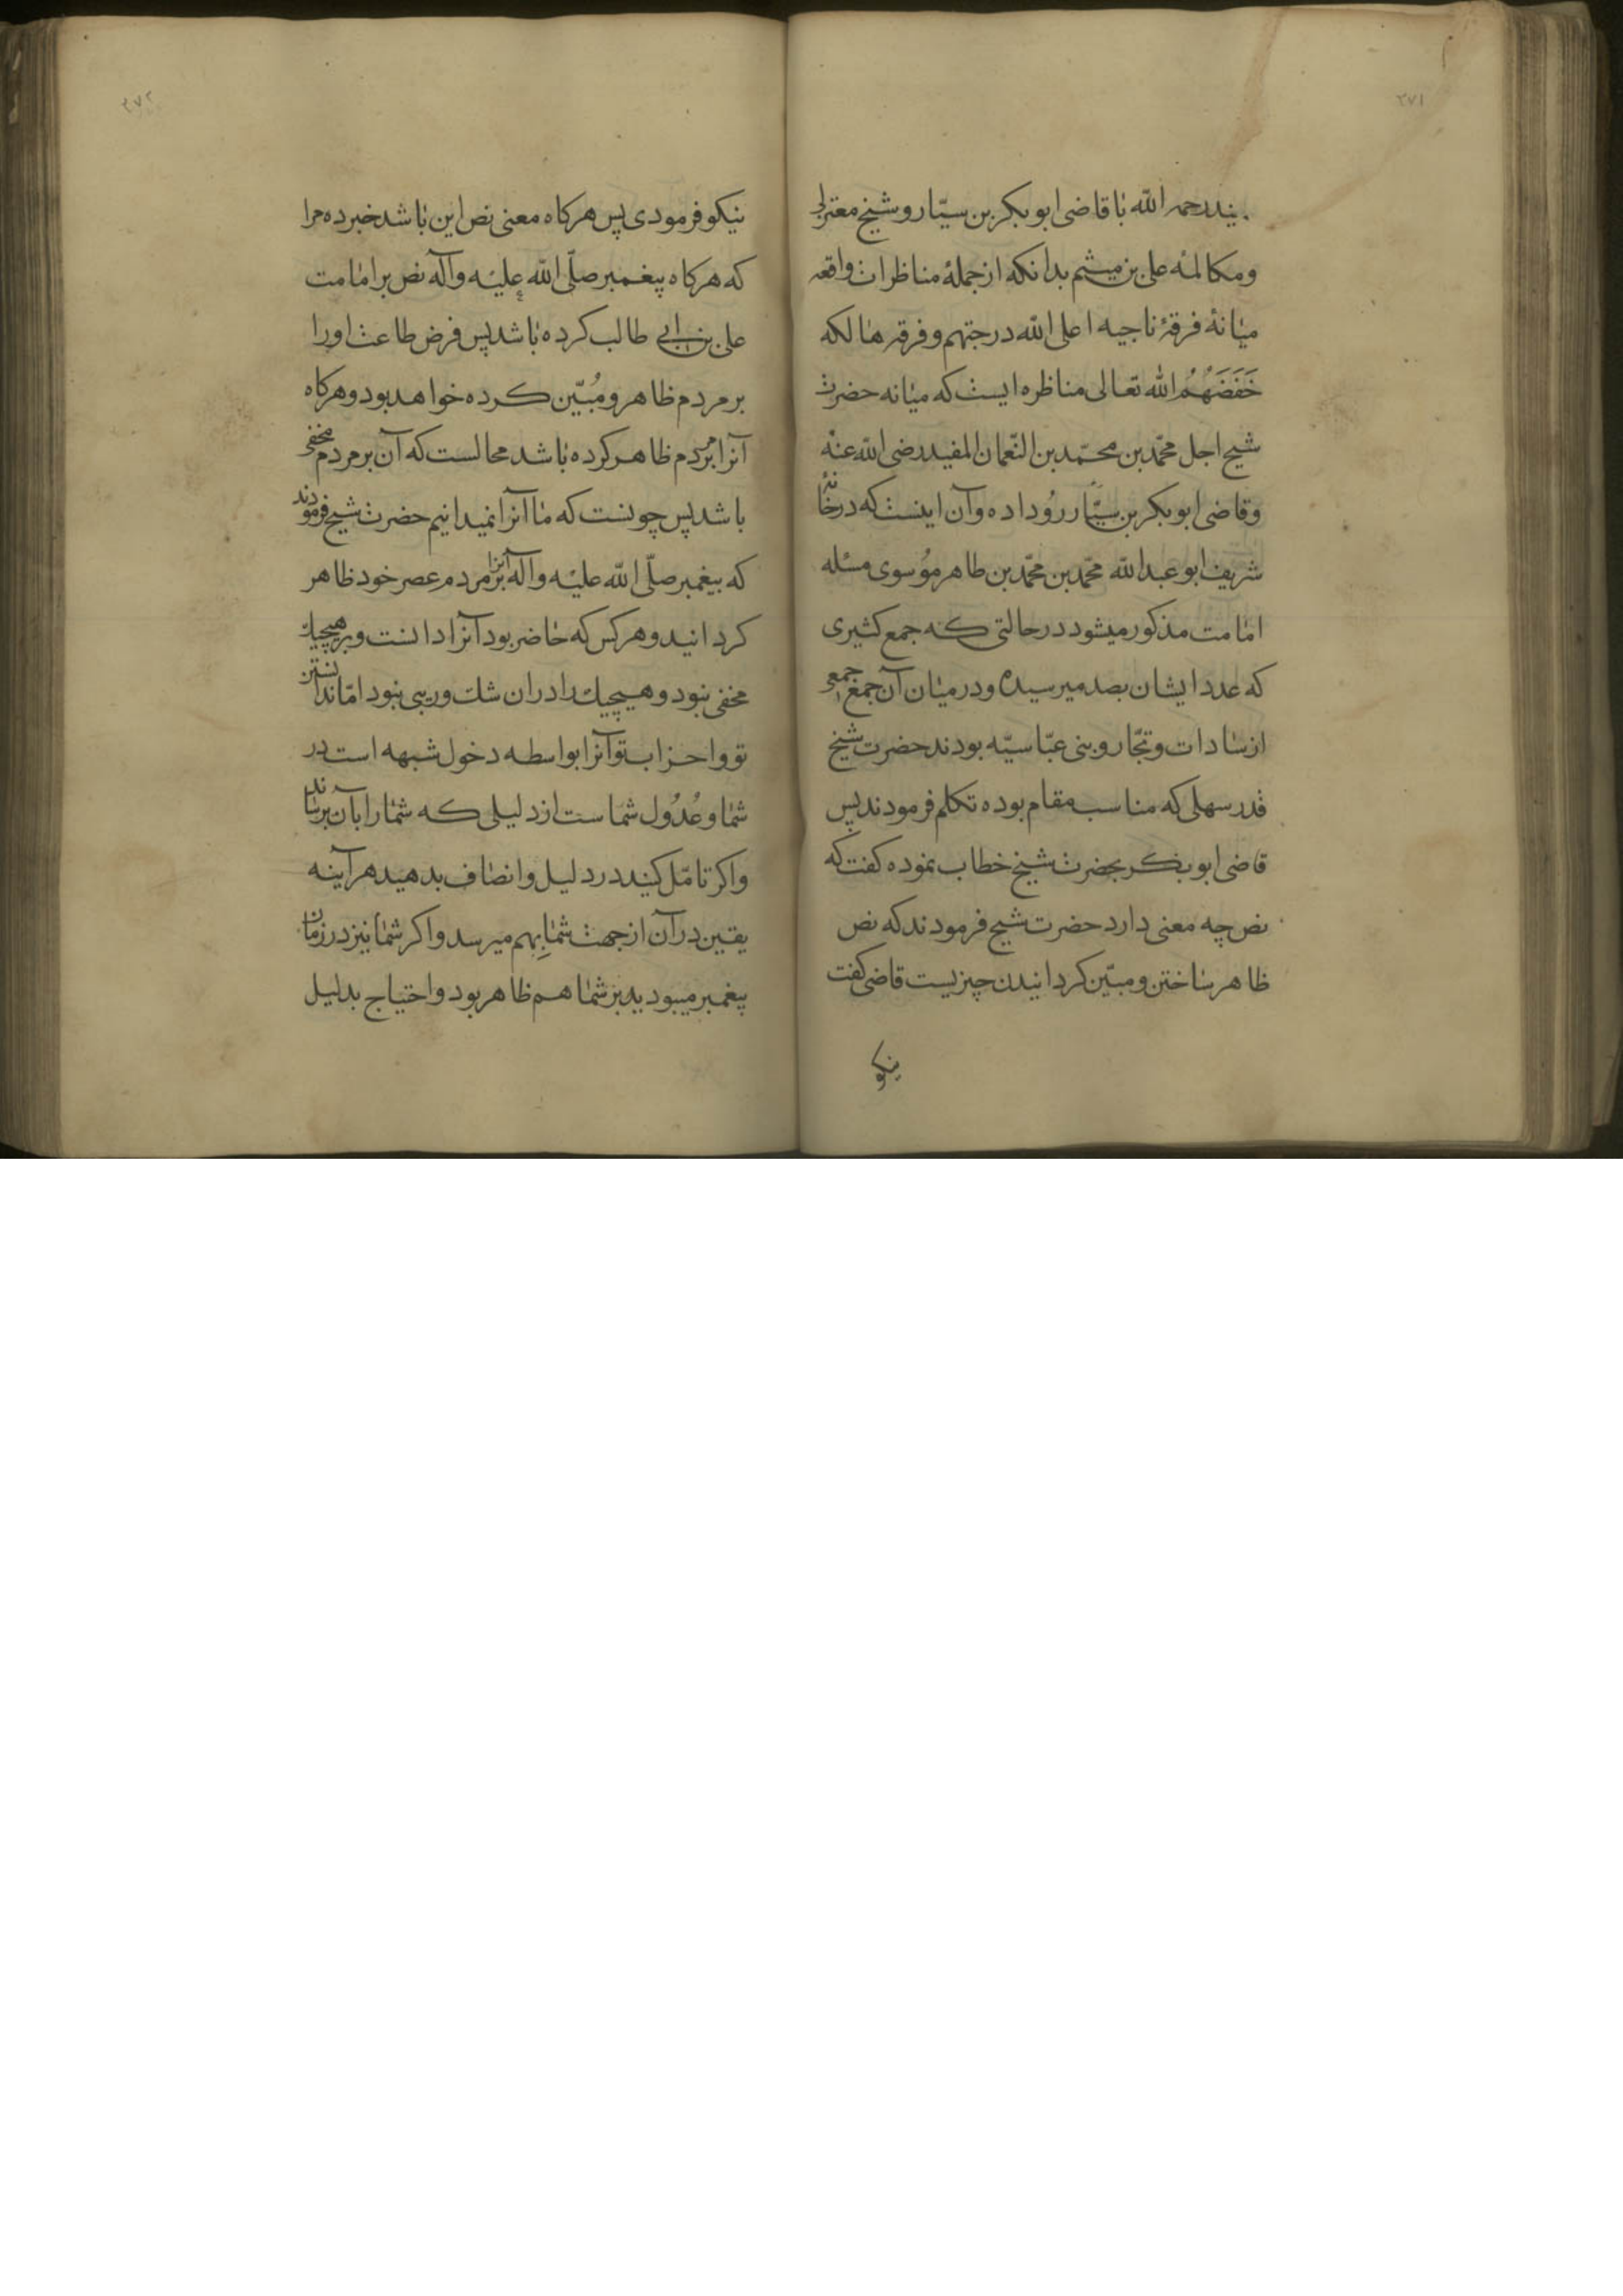 ۲۷۱
یند رحمه الله با قاضی ابو بکر بن سیّار و شیخ معتزلی
و مکالمهٔ علی بن میثم بدانکه از جملهٔ مناظرات واقعه
میانهٔ فرقهٔ ناجیه اعلی الله درجتهم و فرقهٔ هالکه
خَفَضَهُمُ الله تعالی مناظره ایست که میانه حضرت
شیخ اجل محمّد بن محمّد بن النّعمان المفید رضی الله عنه
و قاضی ابو بکر بن سیّار رُو داده و آن اینست که در خانهٔ
شریف ابو عبد الله محمّد بن محمّد بن طاهر موُسوی مسئله
امامت مذکور میشود در حالتی که جمع کثیری
که عدد ایشان بصد میرسیده و در میان آن جمع جمعی
از سادات و تجّار و بنی عبّاسیّه بودند حضرت شیخ
قدر سهلی که مناسب مقام بوده تکلم فرمودند پس
قاضی ابو بکر بحضرت شیخ خطاب نموده کفت که
نص چه معنی دارد حضرت شیخ فرمودند که نص
ظاهر ساختن و مبیّن کردانیدن چیزیست قاضی کفت
نیکو
۲۷۲
نیکو فرمودی پس هرکاه معنی نص این باشد خبر ده مرا
که هرکاه پیغمبر صلّی الله علیه و آله نص بر امامت
علی بن ابی طالب کرده باشد پس فرض طاعت او را
بر مردم ظاهر و مُبیّن کرده خواهد بود و هرکاه
آنرا بر مردم ظاهر کرده باشد محالست که آن بر مردم مخفی
باشد پس چونست که ما آنرا نمیدانیم حضرت شیخ فرمودند
که پیغمبر صلّی الله علیه و آله آنرا بر مردم عصر خود ظاهر
کردانید و هر کس که حاضر بود آنرا دانست و بر هیچیك
مخفی نبود و هیچیك را در ان شك و ریبی نبود امّا ندانستن
تو و احزاب تو آنرا بواسطه دخول شبهه است در
شما و عُدُول شماست از دلیلی که شما را بآن برساند
و اکر تامّل کنید در دلیل و انصاف بدهید هر آینه
یقین در آن از جهت شما بهم میرسد و اکر شما نیز در زمان
پیغمبر میبودید بر شما هم ظاهر بود و احتیاج بدلیل